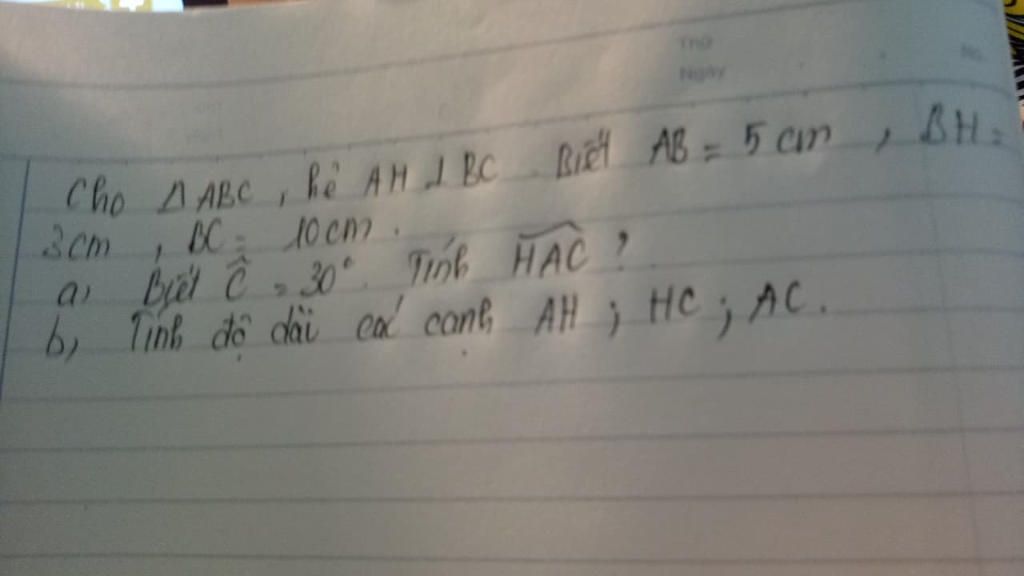 Thứ
Ngày
No.
Cho Δ ABC, kẻ AH ⊥ BC. Biết AB = 5 cm, BH =
3cm, BC = 10cm.
a, Biết Ĉ = 30°. Tính HAC?
b, Tính độ dài các cạnh AH; HC; AC.